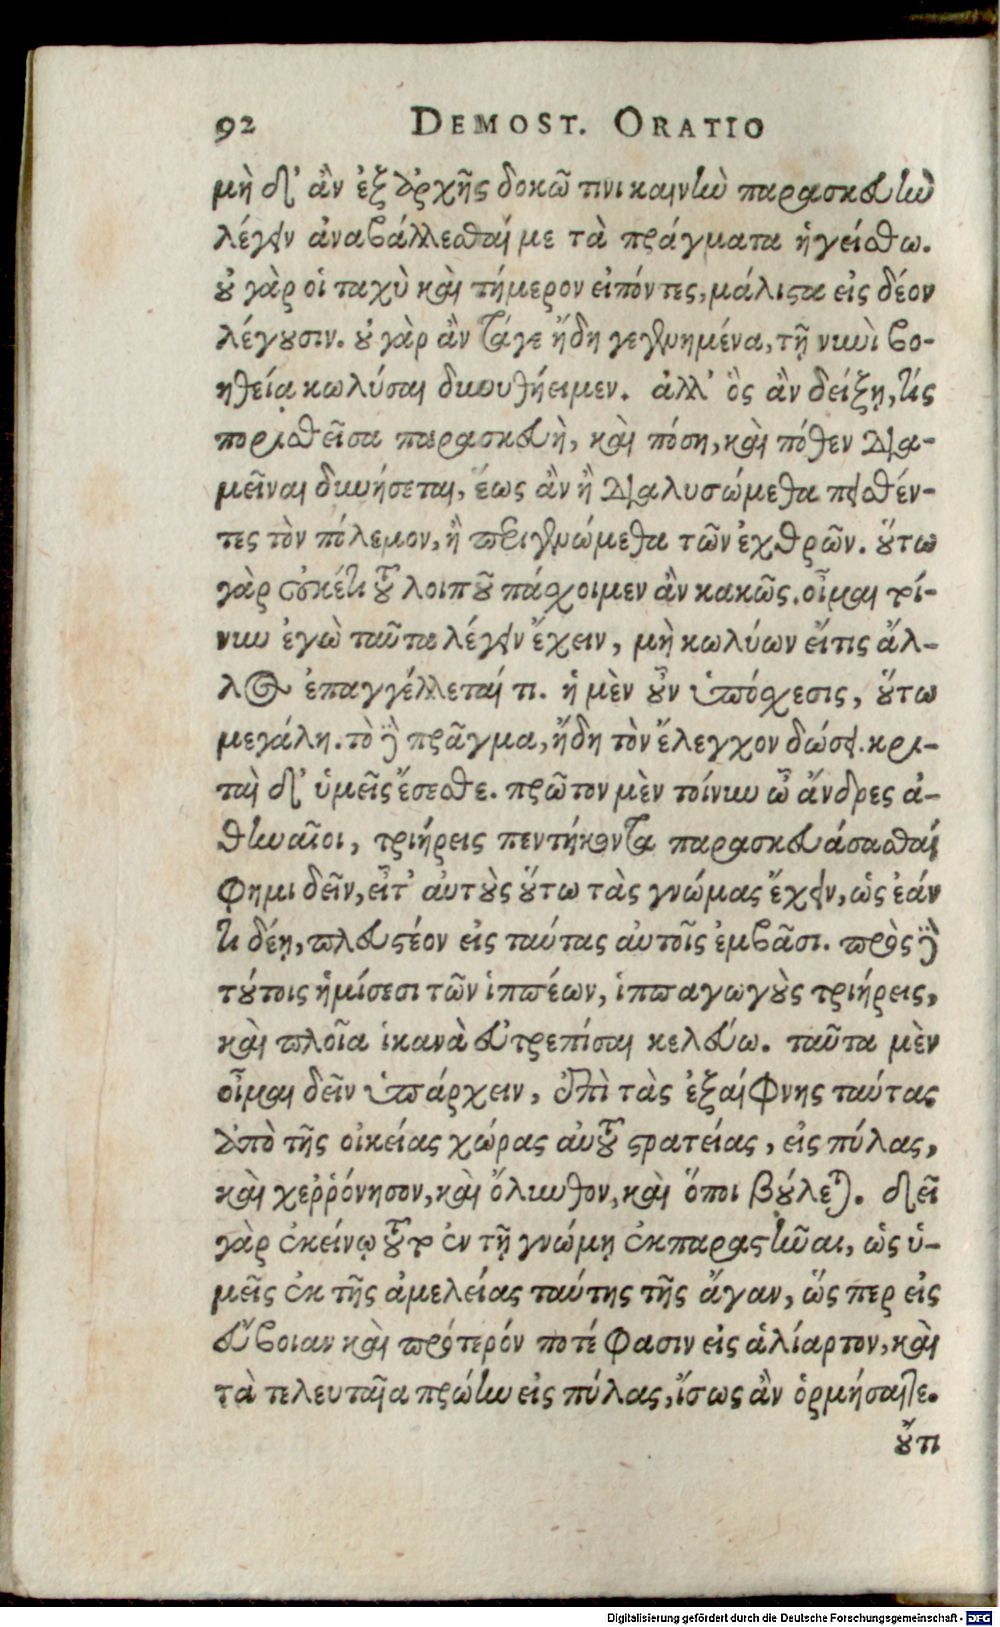 92 DEMOST. ORATIO
μὴ δ’ ἂν ἐξ ἀρχῆς δοκῶ τινι καινὴν παρασκευὴν
λέγειν ἀναβάλλεσθαί με τὰ πράγματα ἡγείσθω.
οὐ γὰρ οἱ ταχὺ καὶ τήμερον εἰπόντες, μάλιστα εἰς δέον
λέγουσιν. οὐ γὰρ ἂν τάγε ἤδη γεγενημένα, τῇ νυνὶ βο-
ηθείᾳ κωλύσαι δυνηθήειμεν. ἀλλ’ ὃς ἂν δείξῃ, τίς
πορισθεῖσα παρασκευὴ, καὶ πόση, καὶ πόθεν δια-
μεῖναι δυνήσεται, ἕως ἂν ἢ διαλυσώμεθα πεισθέν-
τες τὸν πόλεμον, ἢ περιγενώμεθα τῶν ἐχθρῶν. οὕτω
γὰρ οὐκέτι τοῦ λοιποῦ πάσχοιμεν ἂν κακῶς. οἶμαι τοί-
νυν ἐγὼ ταῦτα λέγειν ἔχειν, μὴ κωλύων εἴτις ἄλ-
λος ἐπαγγέλλεταί τι. ἡ μὲν οὖν ὑπόσχεσις, οὕτω
μεγάλη. τὸ δὲ πρᾶγμα, ἤδη τὸν ἔλεγχον δώσει. κρι-
ταὶ δ’ ὑμεῖς ἔσεσθε. πρῶτον μὲν τοίνυν ὦ ἄνδρες ἀ-
θηναῖοι, τριήρεις πεντήκοντα παρασκευάσασθαί
φημι δεῖν, εἶτ’ αὐτοὺς οὕτω τὰς γνώμας ἔχειν, ὡς ἐάν
τι δέῃ, πλευστέον εἰς ταύτας αὐτοῖς ἐμβᾶσι. πρὸς δὲ
τούτοις ἡμίσεσι τῶν ἱππέων, ἱππαγωγοὺς τριήρεις,
καὶ πλοῖα ἱκανὰ εὐτρεπίσαι κελεύω. ταῦτα μὲν
οἶμαι δεῖν ὑπάρχειν, ἐπὶ τὰς ἐξαίφνης ταύτας
ἀπὸ τῆς οἰκείας χώρας αὐτοῦ στρατείας, εἰς πύλας,
καὶ χεῤῥόνησον, καὶ ὄλυνθον, καὶ ὅποι βούλεται. δεῖ
γὰρ ἐκείνῳ τοῦτο ἐν τῇ γνώμῃ ἐκπαραστῆναι, ὡς ὑ-
μεῖς ἐκ τῆς ἀμελείας ταύτης τῆς ἄγαν, ὥς περ εἰς
εὔβοιαν καὶ πρότερόν ποτέ φασιν εἰς ἁλίαρτον, καὶ
τὰ τελευταῖα πρώην εἰς πύλας, ἴσως ἂν ὁρμήσαιτε.
οὔτι
Digitalisierung gefördert durch die Deutsche Forschungsgemeinschaft - DFG